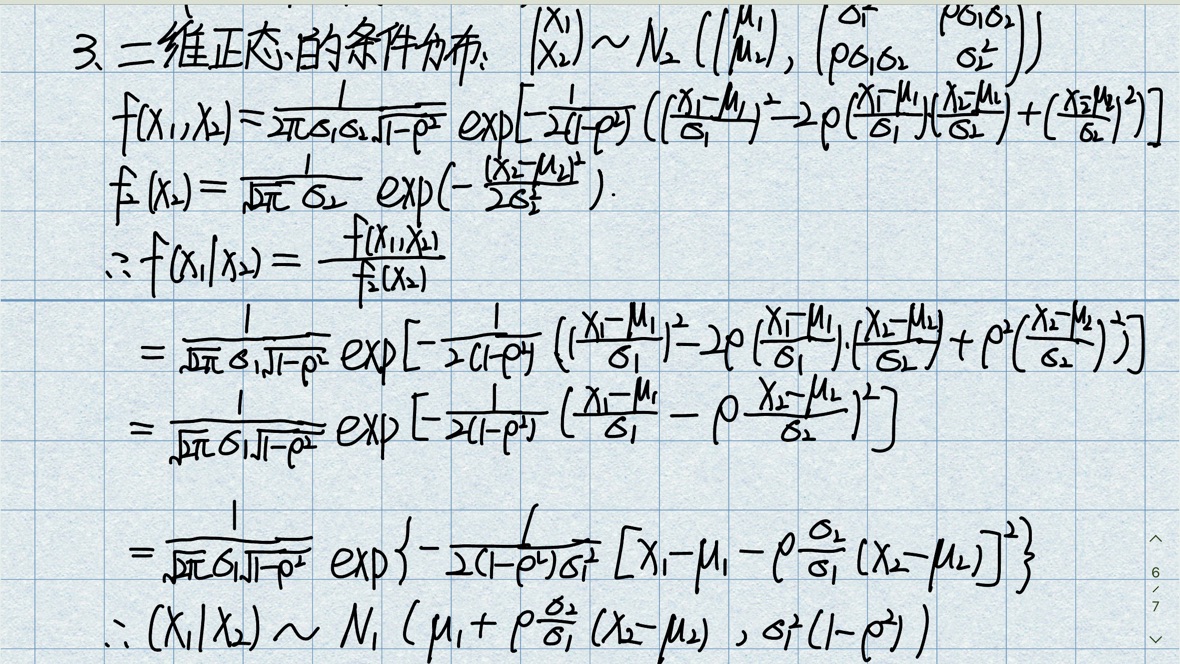 3. 二维正态的条件分布: (X₁ X₂) ~ N₂ ((μ₁ μ₂), (σ₁² ρσ₁σ₂ ρσ₁σ₂ σ₂²))
f(x₁,x₂) = 1/(2πσ₁σ₂√(1-ρ²)) exp[-1/(2(1-ρ²)) (((x₁-μ₁)/σ₁)² - 2ρ((x₁-μ₁)/σ₁)((x₂-μ₂)/σ₂) + ((x₂-μ₂)/σ₂)²)]
f₂(x₂) = 1/(√2π σ₂) exp(-(x₂-μ₂)²/(2σ₂²)).
∴ f(x₁|x₂) = f(x₁,x₂)/f₂(x₂)
= 1/(√2π σ₁√(1-ρ²)) exp[-1/(2(1-ρ²)) (((x₁-μ₁)/σ₁)² - 2ρ((x₁-μ₁)/σ₁)·((x₂-μ₂)/σ₂) + ρ²((x₂-μ₂)/σ₂)²)]
= 1/(√2π σ₁√(1-ρ²)) exp[-1/(2(1-ρ²)) ((x₁-μ₁)/σ₁ - ρ (x₂-μ₂)/σ₂)²]
= 1/(√2π σ₁√(1-ρ²)) exp{-1/(2(1-ρ²)σ₁²) [x₁-μ₁-ρ σ₂/σ₁ (x₂-μ₂)]²}
∴ (X₁|X₂) ~ N₁ (μ₁ + ρ σ₂/σ₁ (x₂-μ₂), σ₁²(1-ρ²))
6
/
7